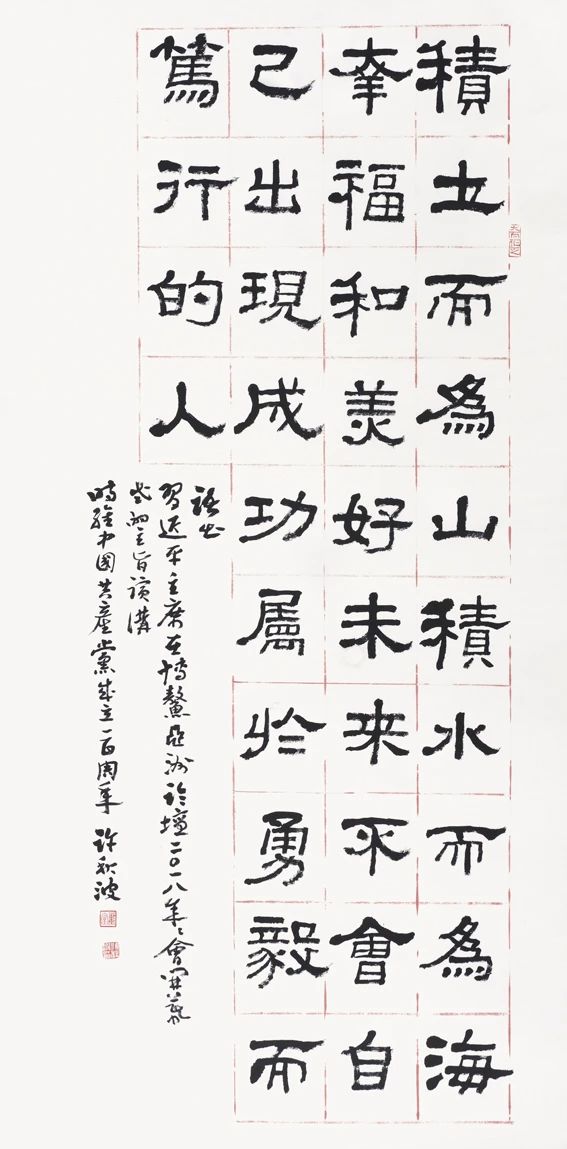 積土而為山積水而為海
幸福和美好未来不會自
己出現成功属於勇毅而
篤行的人
語出
習近平主席在博鰲亞洲論壇二〇一八年々會開幕
式的主旨演講
時維中國共產黨成立一百周年 許秋波